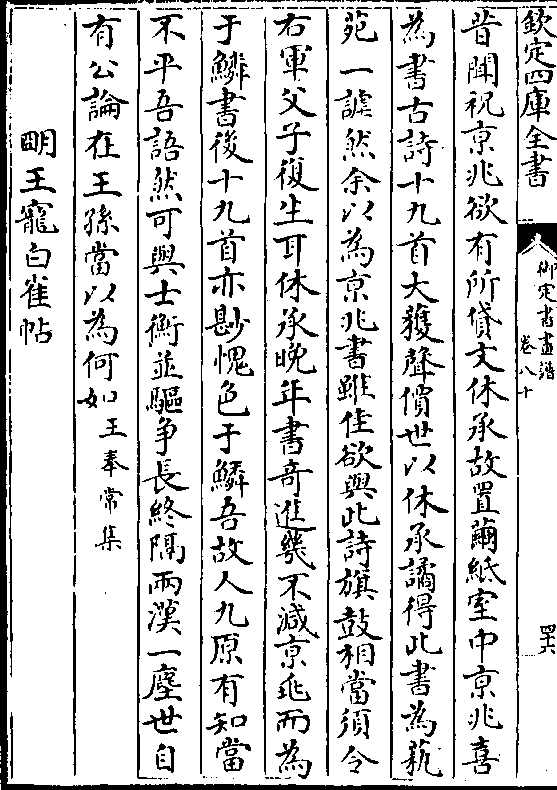 欽定四庫全書
御定書畫譜
卷八十
四六
昔聞祝京兆欲有所貸文休承故置繭紙室中京兆喜
為書古詩十九首大獲聲價世以休承譎得此書為藝
苑一謔然余以為京兆書雖佳欲與此詩旗鼓相當須令
右軍父子復生耳休承晚年書奇進幾不減京兆而為
于鱗書後十九首亦尠愧色于鱗吾故人九原有知當
不平吾語然可與士衡並驅争長終隔兩漢一塵世自
有公論在王孫當以為何如王奉常集
明王寵白雀帖